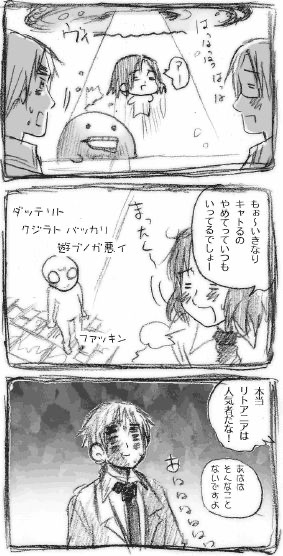 はっはっはっはっ
ウィー
?
もぉ〜いきなり
キャトるの
やめてっていつも
いってるでしょー
まったく〜
ダッテリト
クジラト バッカリ
遊ブノガ悪イ
ファッキン
本当
リトアニアは
人気者だな!
あはは
そんなこと
ないですよ